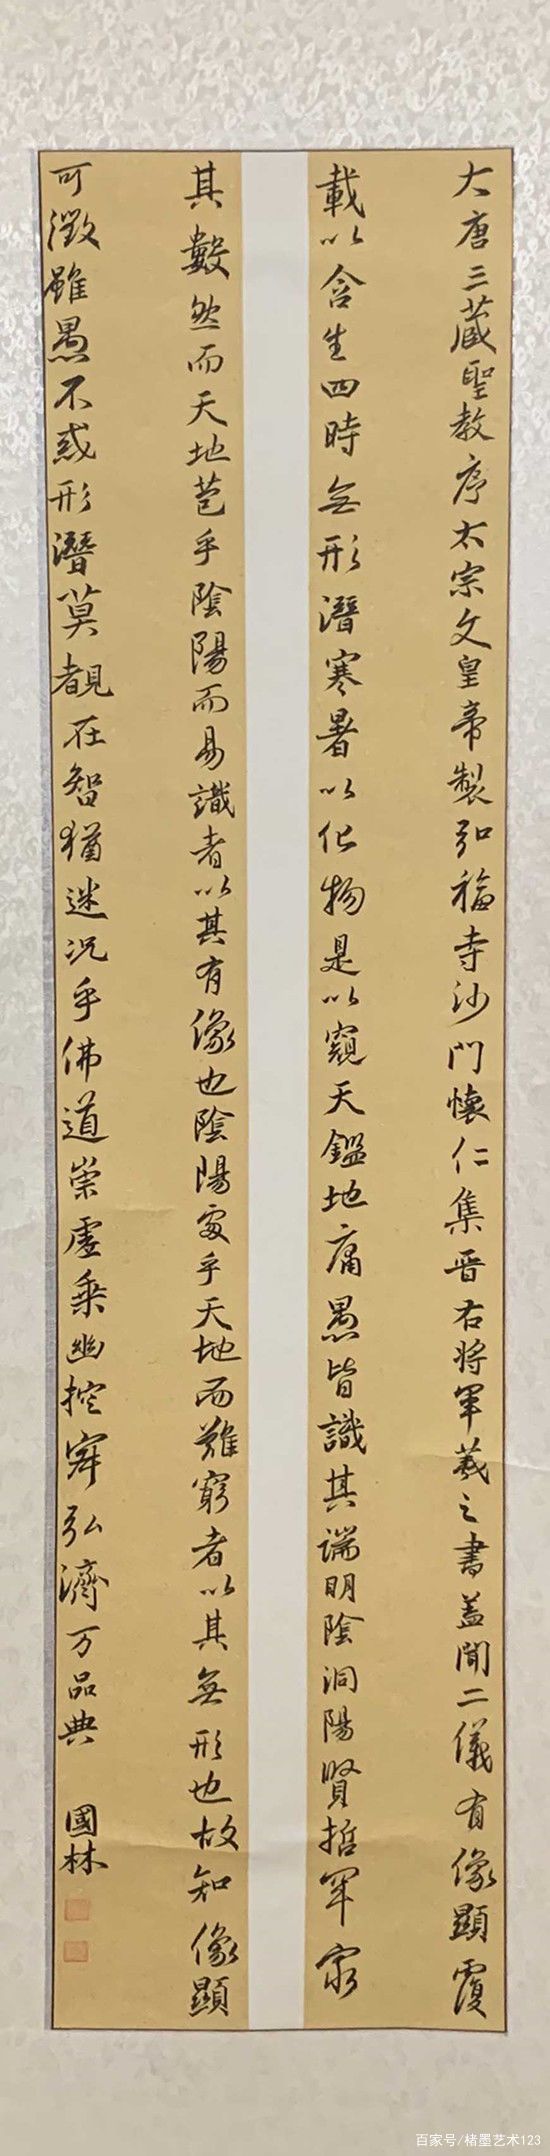 大唐三蔵聖教序太宗文皇帝製弘福寺沙門懐仁集晋右将軍羲之書蓋聞二儀有像顯覆
載以含生四時無形潛寒暑以化物是以窺天鑑地庸愚皆識其端明陰洞陽賢哲罕窮
其數然而天地苞乎陰陽而易識者以其有像也陰陽處乎天地而難窮者以其無形也故知像顯
可徵雖愚不惑形潛莫覩在智猶迷况乎佛道崇虛乗幽控寂弘濟万品典
國林
百家号/楮墨艺术123